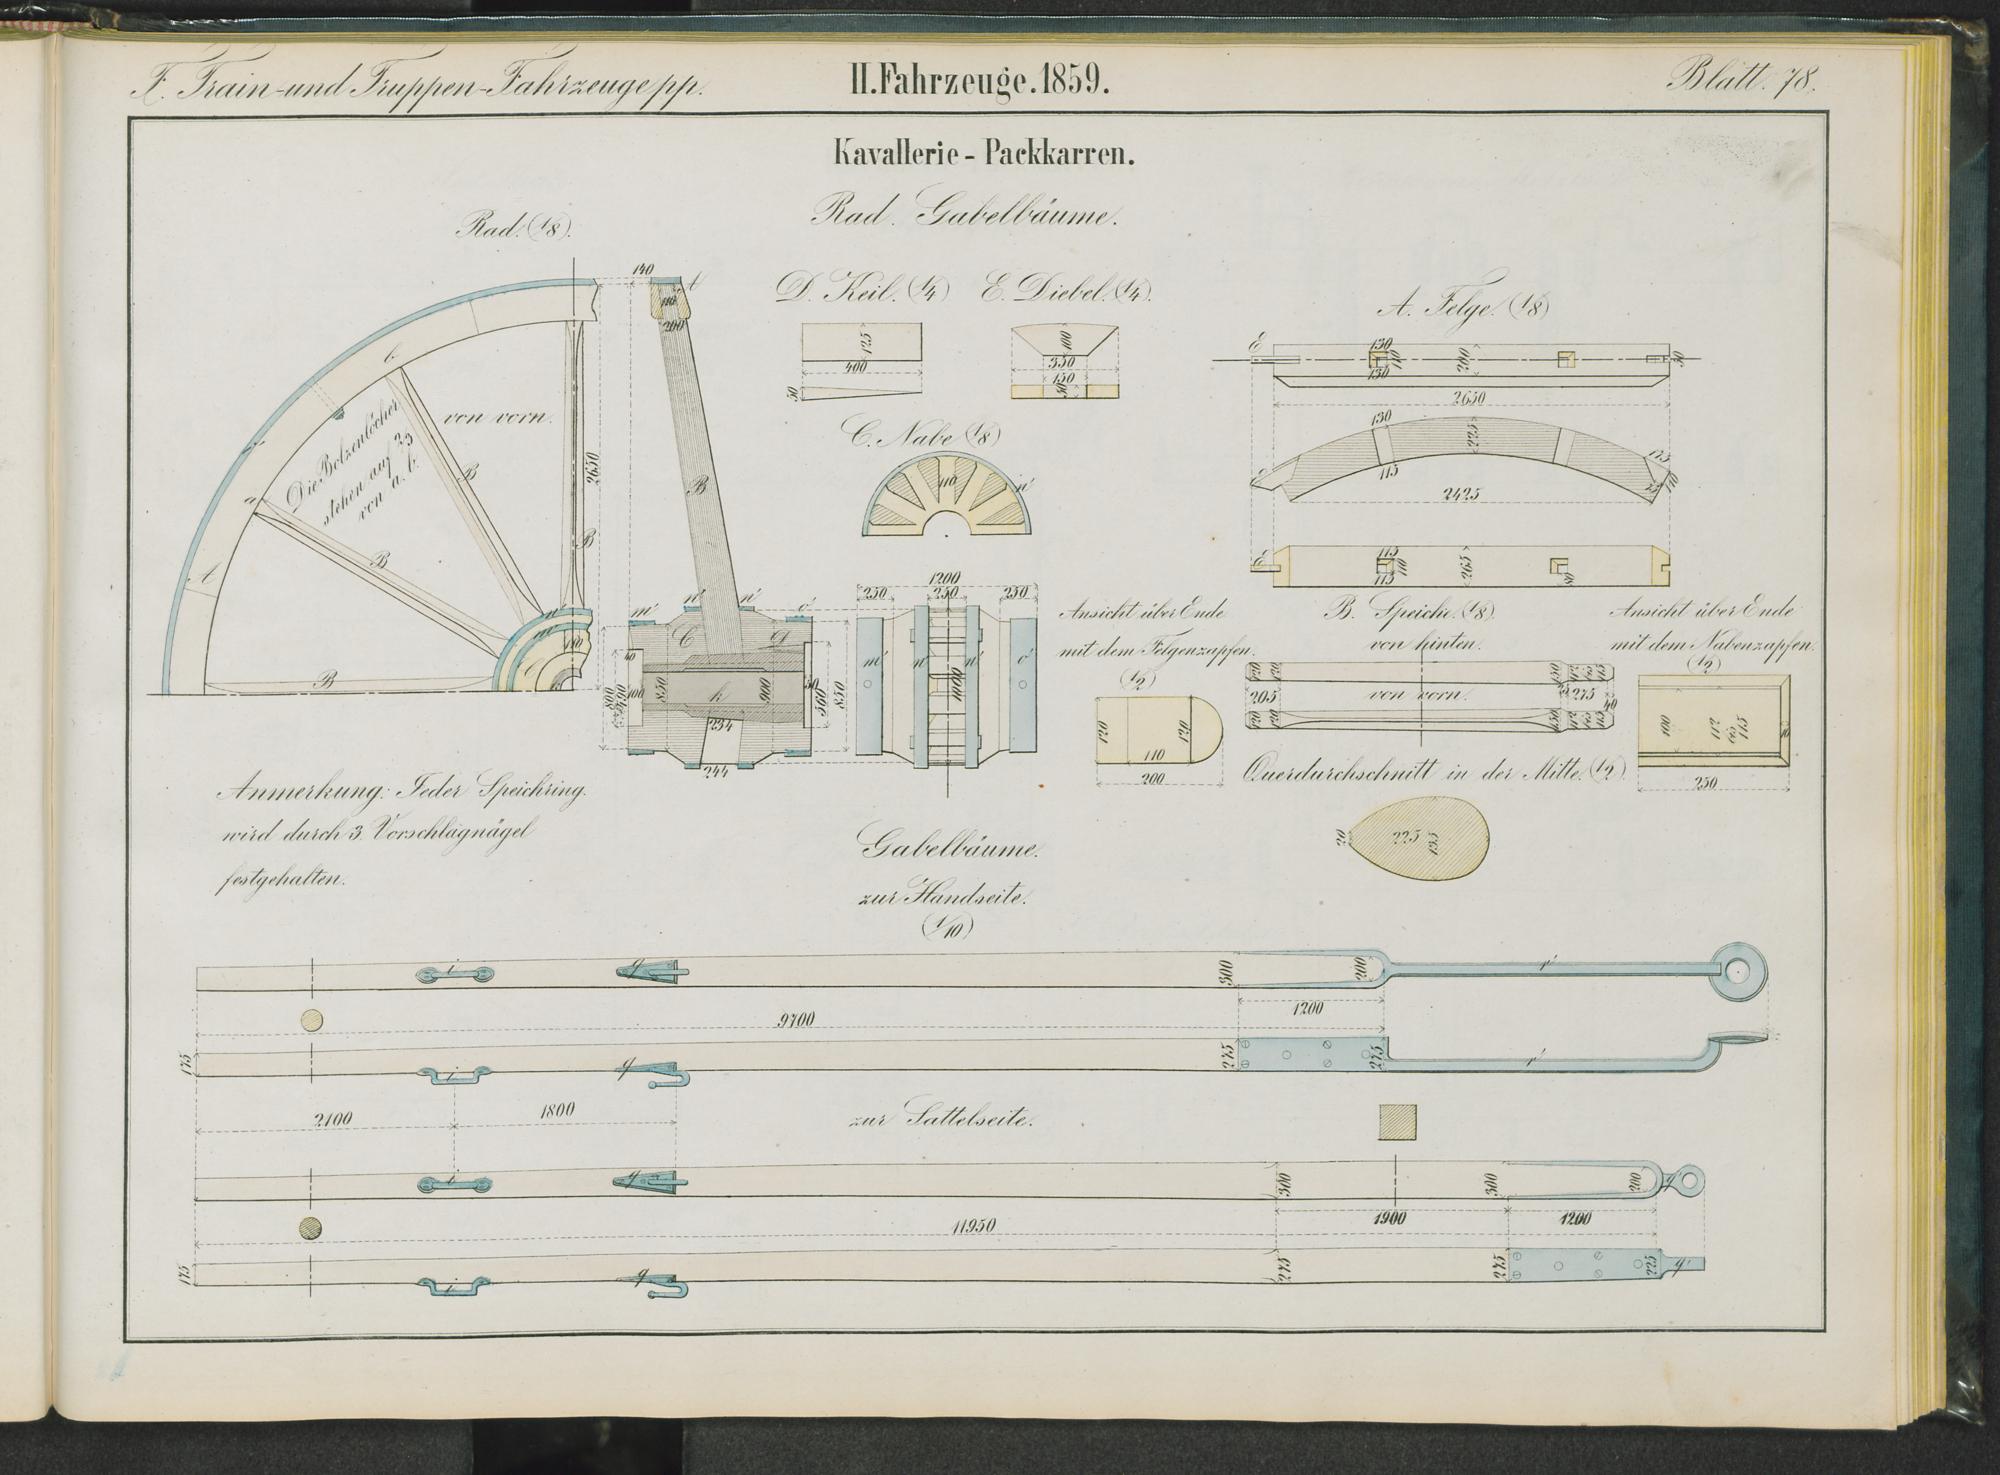 F. Train- und Truppen-Fahrzeuge pp.
II. Fahrzeuge. 1859.
Blatt. 78.
Kavallerie - Packkarren.
Rad. Gabelbäume.
Rad. (1/8).
140
A
110
200
von vorn.
Die Bolzenlöcher
stehen auf 2/3
von a. b.
a
b
A
B
B
B
B
B
2650
D. Keil. (1/4)
125
400
50
E. Diebel. (1/4).
100
350
150
50
C. Nabe (1/8)
110
n'
A. Felge. (1/8)
E
130
110
130
200
50
2650
130
225
115
125
110
2425
E
115
110
115
265
80
m'
n'
n'
o'
C
D
k
40
100
850
900
50
560
850
234
244
1200
250
250
250
m'
n'
n'
o'
1000
Ansicht über Ende
mit dem Felgenzapfen.
(1/2)
120
120
110
200
B. Speiche. (1/8)
von hinten.
von vorn.
205
275
40
Ansicht über Ende
mit dem Nabenzapfen.
(1/2)
100
112
65
115
10
250
Querdurchschnitt in der Mitte. (1/2)
20
225
135
Anmerkung: Jeder Speichring
wird durch 3 Vorschlagnägel
festgehalten.
Gabelbäume.
zur Handseite.
(1/10)
i
q
300
200
r'
1200
9700
175
i
q
275
275
r'
2100
1800
zur Sattelseite.
i
q
300
300
200
q'
1900
1200
11950
175
i
q
275
275
225
q'